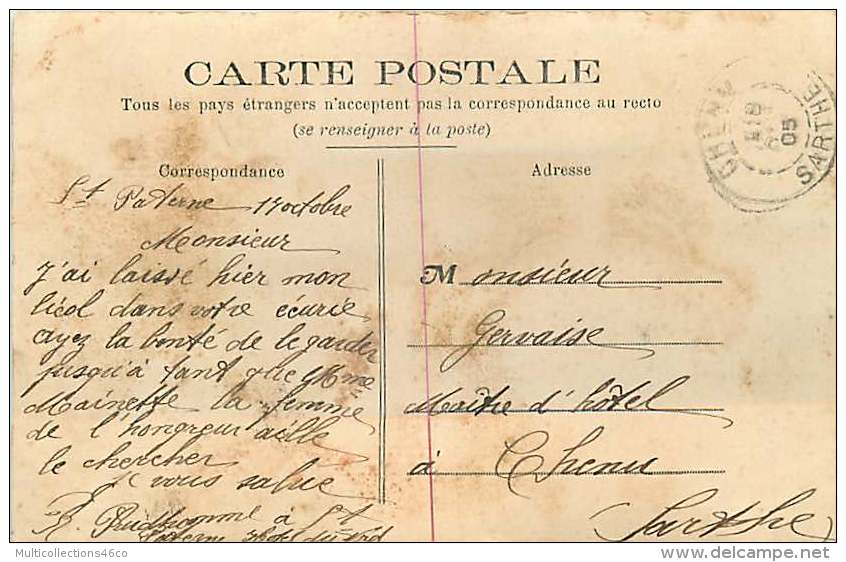 CARTE POSTALE
Tous les pays étrangers n'acceptent pas la correspondance au recto
(se renseigner à la poste)
Correspondance
St Paterne 17 octobre
Monsieur
J'ai laissé hier mon
licol dans votre écurie
ayez la bonté de le garder
jusqu'à tant que Mme
Mainette la femme
de l'hongreur aille
le chercher
Je vous salue
R. Prudhomme à St
Paterne hotel du
Adresse
Monsieur
Gervaise
Maître d'hôtel
à Chenu
Sarthe
CHENU
05
SARTHE
Multicollections46co
www.delcampe.net